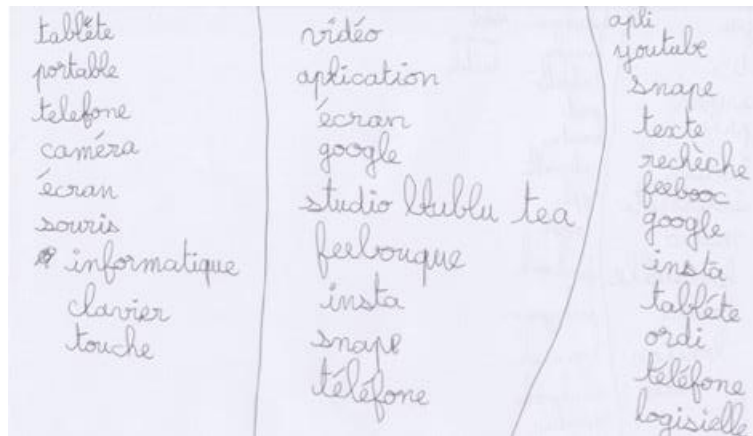 tabléte
portable
telefone
caméra
écran
souris
informatique
clavier
touche
vidéo
aplication
écran
google
studio blublu tea
feebouque
insta
snape
téléfone
apli
youtube
snape
texte
rechèche
feebooc
google
insta
tabléte
ordi
téléfone
logisielle